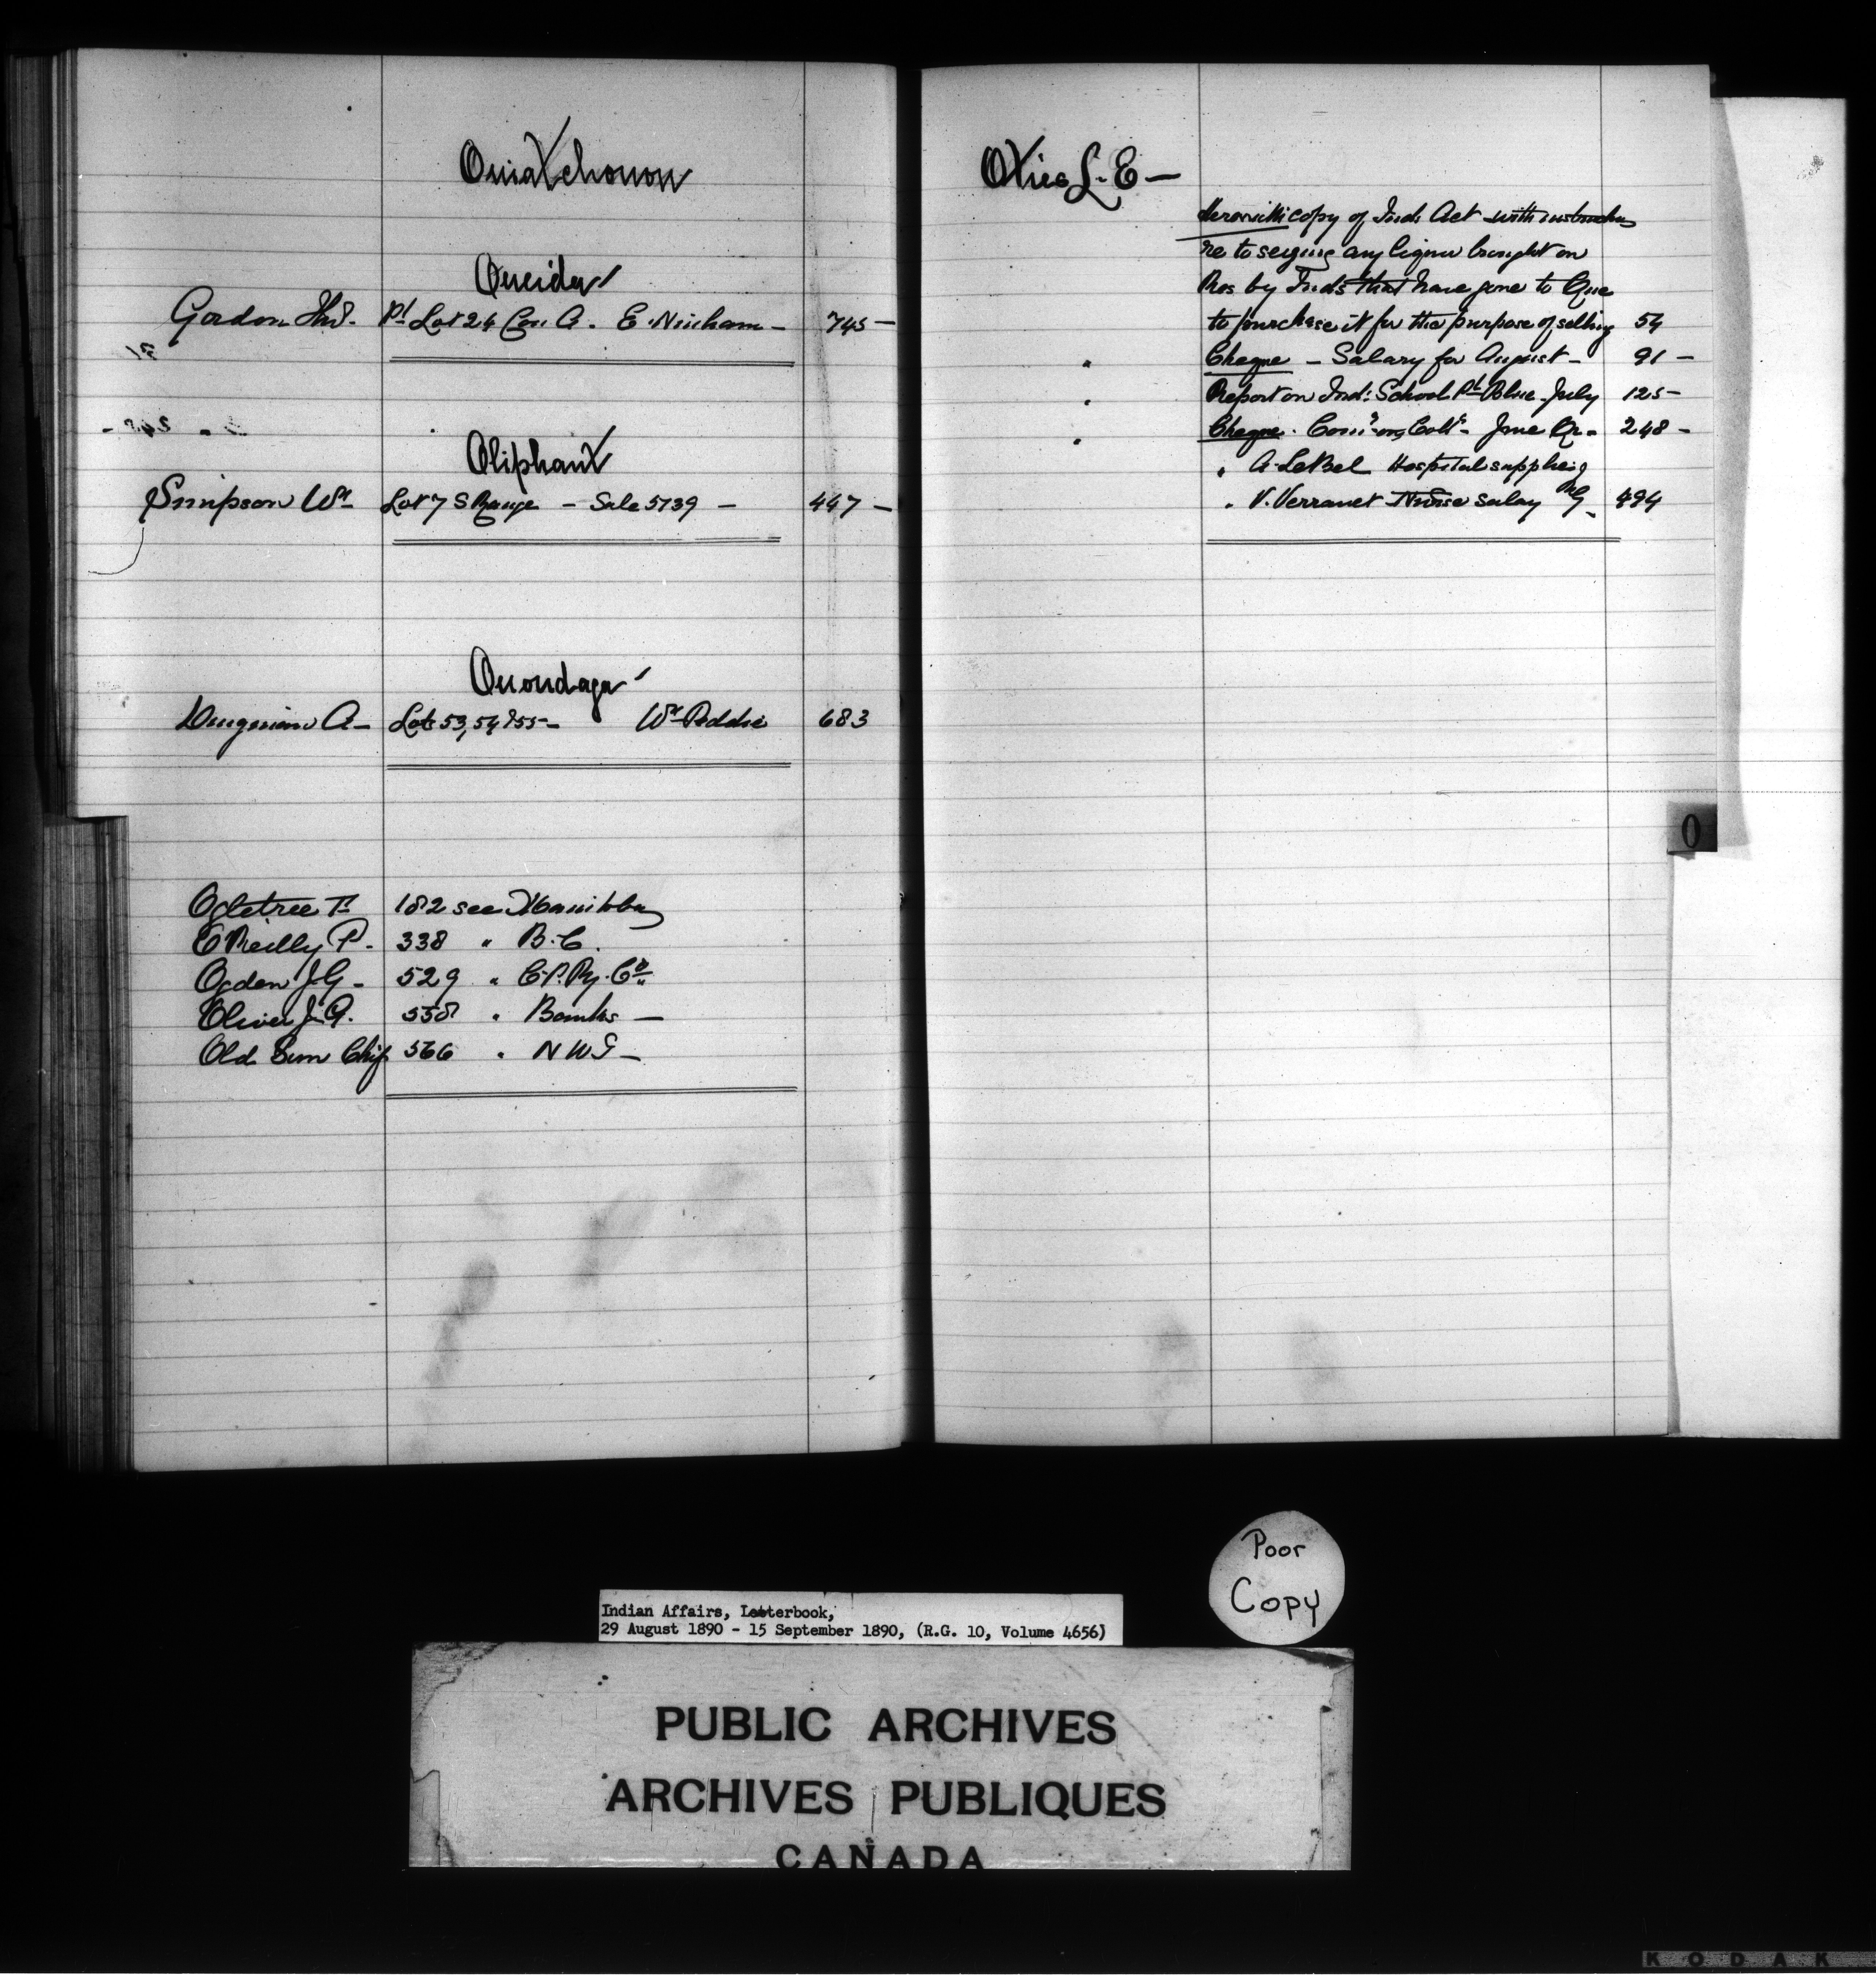 Ouiatchouon
Oneida
Gordon Thos. Pt Lot 24 Con A. E. Ninham - 745 -
Oliphant
Simpson Wm Lot 7 S Range - Sale 5739 - 447 -
Onondaga
A - Lots 53, 54 & 55 - Wm Peddie 683
Ogletree F. 182 see Manitoba
O'Reilly P. - 338 " B.C.
Ogden J.G - 529 " C.P. Ry. Co.
Oliver J.A. 558 " Banks -
Old Sun Chief 566 " N W T -
Otis L. E -
Herewith copy of Inds Act with instructns
re to seizing any liquor brought on
Res by Inds that have gone to Que
to purchase it for the purpose of selling 54
" Cheque - Salary for August - 91 -
" Report on Ind: School Pt Blue - July 125 -
" Cheque. Comn on Colls - June Qr - 248 -
" A. LeBel Hospital supplies
" V. Verrault Nurse salary 494
O
Poor
Copy
Indian Affairs, Letterbook,
29 August 1890 - 15 September 1890, (R.G. 10, Volume 4656)
PUBLIC ARCHIVES
ARCHIVES PUBLIQUES
CANADA
KODAK